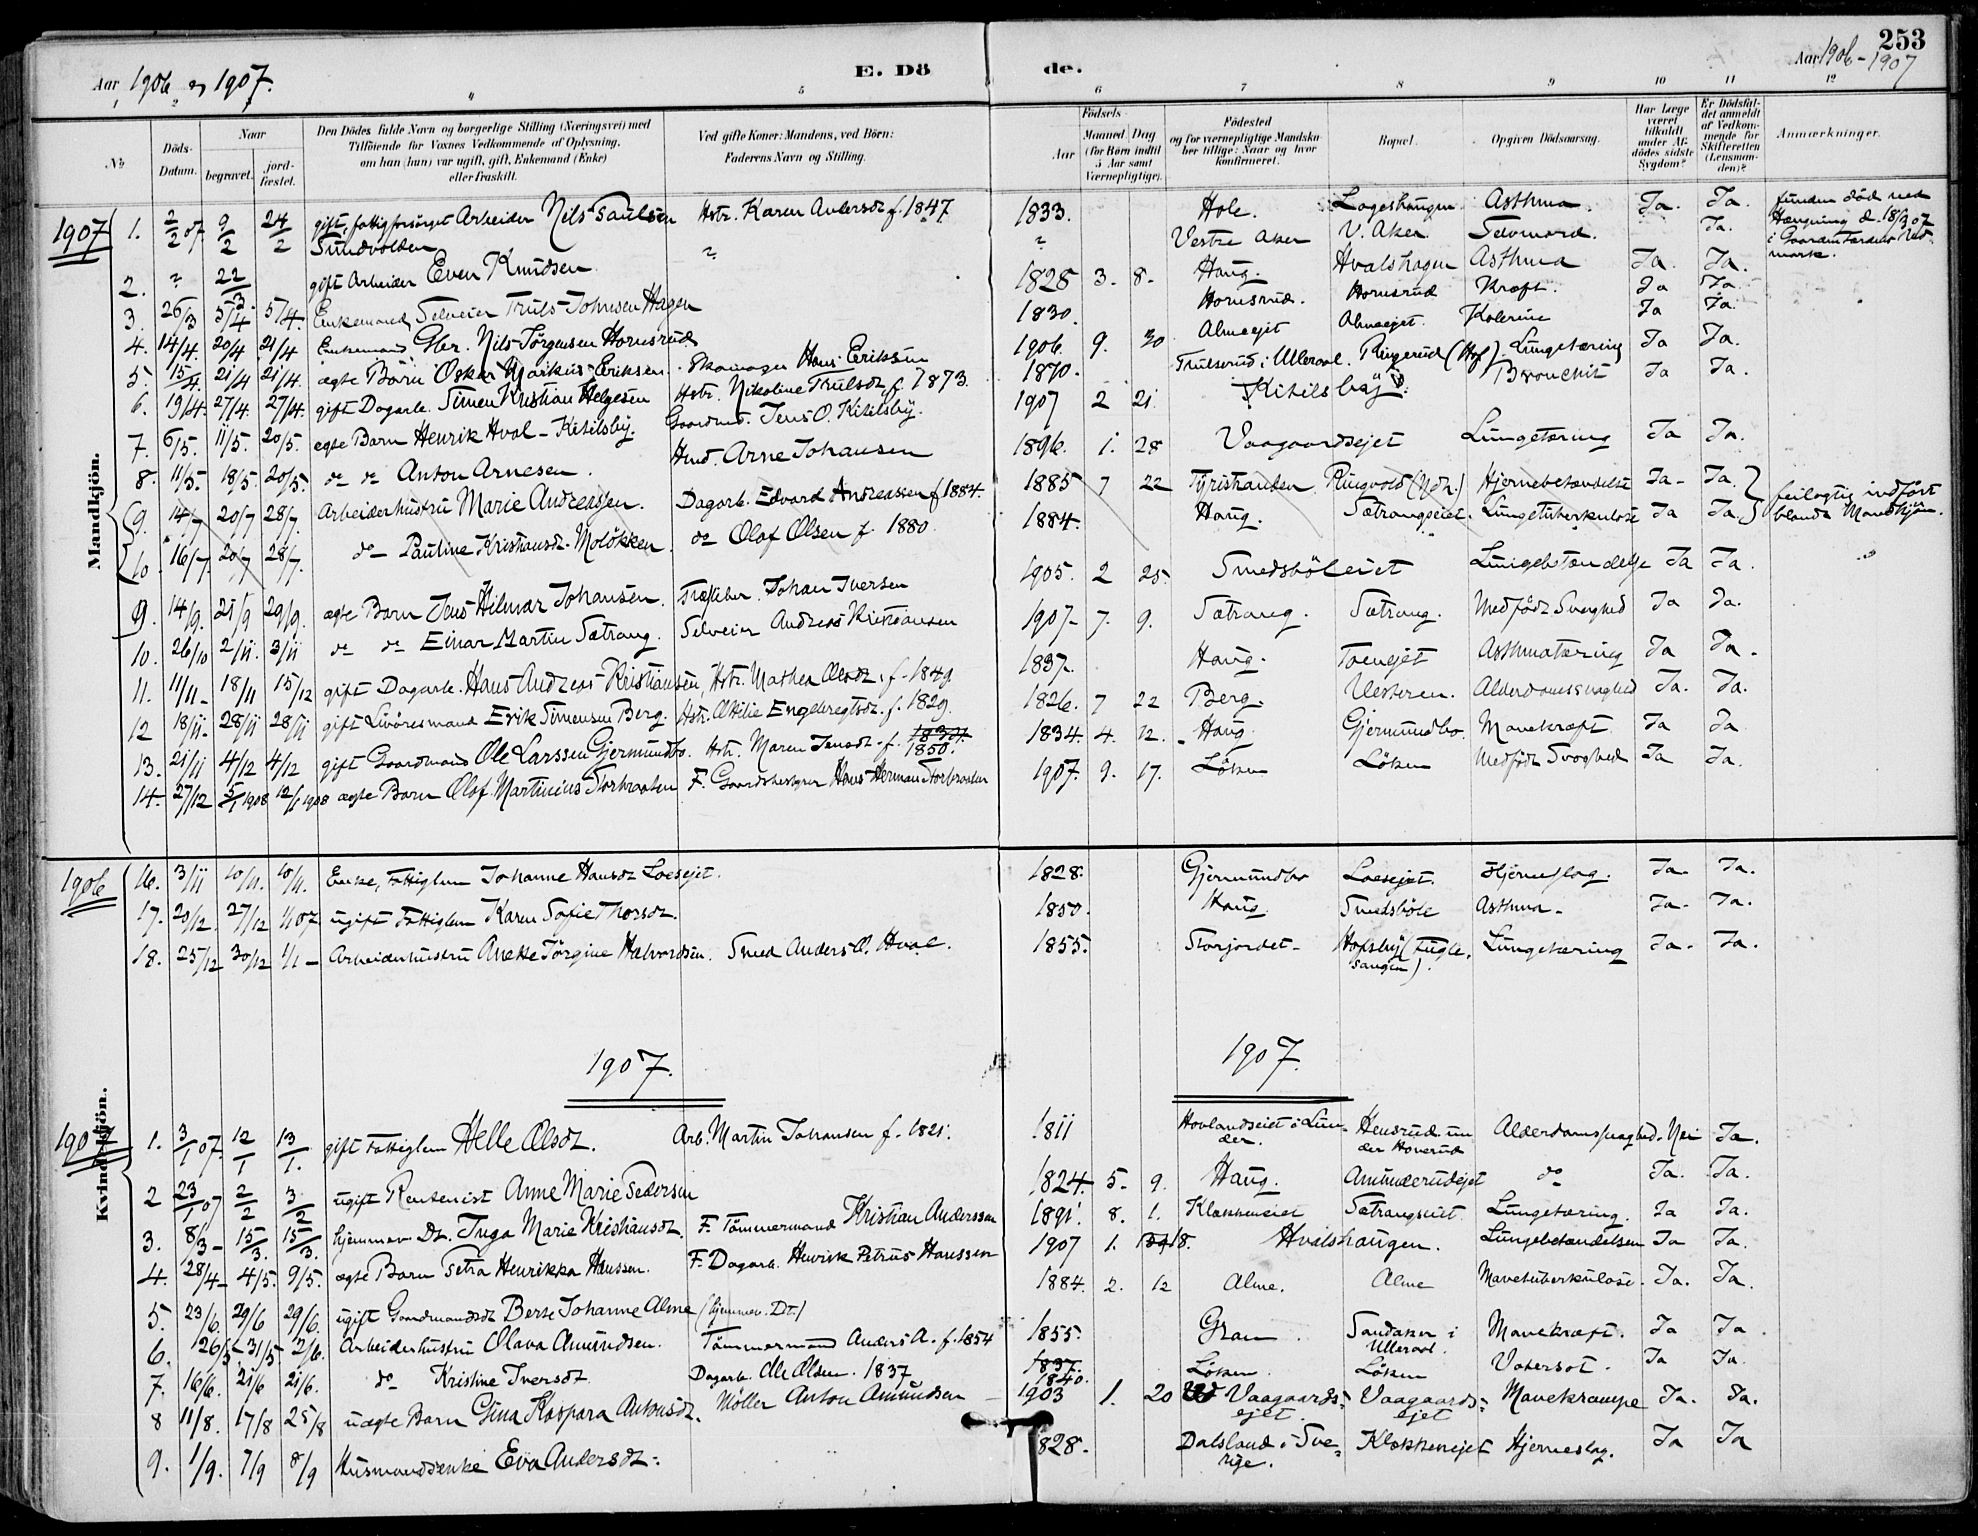 253
Aar 1906 og 1907.
E. Dö
de.
Aar 1906-1907
4 5 6 7 8 9 10 11 12
№
Döds-Datum.
Naar
begravet.
jord-fæstet.
Den Dödes fulde Navn og borgerlige Stilling (Næringsvei) med
Tilföiende for Voxnes Vedkommende af Oplysning,
om han (hun) var ugift, gift, Enkemand (Enke)
eller fraskilt.
Ved gifte Koner: Mandens, ved Börn:
Faderens Navn og Stilling.
Födsels
Aar
Maaned Dag
(for Börn indtil
5 Aar samt
Værnepligtige).
Födested
og for værnepligtige Mandska-
ber tillige: Naar og hvor
konfirmeret.
Bopæl.
Opgiven Dödsaarsag.
Har Læge
været
tilkaldt
under Af-
dödes sidste
Sygdom?
Er Dödsfal-
det anmeldt
af Vedkom-
mende for
Skifteretten
(Lensman-
den)?
Anmærkninger.
Mandkjön.
1907
1. 2/2 07. 9/2 24/2 gift, fattigforsörget Arbeider Nils Paulsen Sundvolden Hstr. Karen Andersdt. f. 1847 1833. Hole. Lageshaugen Asthma. Ja. Ja.
2. ? 22/3. gift Arbeider Even Knudsen ? ? Vestre Aker V. Aker. Selvmord. Ja. funden död ved Hængning d. 18/3 07
3. 26/3 5/4 5/4. Enkemand, Selveier Truls Johnsen Hagen 1828 3. 8. Haug. Hvalshagen Asthma Ja. Ja.
4. 14/4. 20/4 21/4 Enkemand Gbr. Nils Jörgensen Hornsrud 1830. Hornsrud. Hornsrud Kræft. Ja Ja.
5. 15/4. 21/4 21/4. ægte Barn Oskar Marikus Eriksen. Skomager Hans Eriksen 1906. 9. 30 Almeejet Almeejet. Kolerine Ja Ja.
6. 19/4. 27/4. 27/4. gift Dagarb. Simen Kristian Helgesen Hstr. Nikoline Trulsdt. f. 1873. 1870. Trulserud i Ulleraal. Ringerud (Hof) Lungetæring Ja Ja.
7. 6/5. 11/5. 20/5. ægte Barn Henrik Hval-Kihilsby. Gaardmd. Jens O. Kihilsby. 1907 2 21. Kihilsby. Bronchit Ja Ja.
8. 11/5. 18/5. 20/5. do do Anton Arnesen. Hmd. Arne Johansen 1896. 1. 28 Vaagaardsejet Lungetæring Ja Ja.
9. 14/7 20/7 28/7. Arbeiderhustru Marie Andreassen. Dagarb. Edvard Andreassen f 1884. 1885 7 22 Tyristranden Ringvold (Ndr.) Hjernebetændelse Ja- Ja. feilagtig indfört
10. 16/7. 20/7 28/7. do- Pauline Kristiansdt. Molökken. do Olaf Olsen f. 1880. 1884. Haug. Sætrangseiet. Lungetuberkulose Ja Ja. blandt Mandkjön.
9. 14/9. 21/9 29/9. ægte Barn Jens Hilmar Johansen. Johan Iversen 1905. 2 25. Smedsböleiet Lungebetændelse Ja Ja.
10. 26/10 2/11. 3/11 do do Einar Martin Sætrang. Selveier Andreas Kristiansen 1907- 7. 9. Sætrang. Sætrang. Medfödt Svaghed Ja Ja.
11. 11/11- 18/11 15/12 gift Dagarb. Hans Andreas Kristiansen, Hstr. Mathea Olsdt. f. 1849 1837. Haug. Toenejet Asthmatæring Ja Ja.
12 18/11- 28/11 28/11 gift Livöresmand Erik Simensen Berg. Hstr. Ottilie Engebregtsdt. f. 1829. 1826. 7 22 Berg. Vesteren. Alderdomssvaghed Ja. Ja.
13. 21/11 4/12 4/12 gift Gaardmand Ole Larssen Gjermundbo. Hstr. Maren Jensdt. f. 1850. 1834. 4. 12. Haug. Gjermundbo. Mavekræft Ja Ja.
14. 27/12 5/1 1908 12/1 1908 ægte Barn Olaf Martinius Storbraaten F. Gaardsbestyrer Hans Herman Storbraaten 1907. 9. 17. Löken Löken Medfödt Svaghed Ja Ja.
1906
16. 3/11 10/11. 10/11. Enke, Fattiglem Johanne Hansdt Loesejet. 1828. Gjermundbo Loesejet. Hjerneslag. Ja. Ja.
17. 20/12. 27/12 1/1 07 ugift Fattiglem Karen Sofie Thorsdt. 1850. Haug Smedsböle Asthma- Ja. Ja.
18. 25/12 30/12 1/1- Arbeiderhustru Anette Jörgine Halvordsen. Smed Anders A. Hval. 1855. Storjordet- Hofsby (Fuglesangen). Lungetæring Ja. Ja.
1907.
1907.
Kvindekjön.
1907
1. 3/1 07. 12/1 13/1. gift Fattiglem Helle Olsdt. Arb. Martin Johansen f. 1821. 1811 Hovlandseiet i Lunder. Hensrud under Hoverud Alderdomssvaghed. Nei Ja.
2 23/1 07 2/2 3/2 ugift Rentenist Anne Marie Pedersen 1824. 5. 9. Haug. Amunderudejet do Ja. Ja.
3. 8/3- 15/3. 15/3. hjemmev. Dt. Inga Marie Kristiansdt. F. Tömmermand Kristian Anderssen 1891. 8. 1. Klækkeneiet Sætrangseiet Lungetæring. Ja Ja.
4. 28/4- 4/5. 9/5. ægte Barn Petra Henrikka Hanssen. F. Dagarb. Henrik Petrus Hanssen 1907 1. 18. Hvalshaugen. Lungebetændelsen Ja Ja.
5. 23/6. 29/6 29/6. ugift Gaardmandsdt Berte Johanne Alme (hjemmev. Dt.) 1884. 2. 12 Alme. Alme Mavetuberkulose. Ja. Ja.
6. 26/5- 31/5 2/6. Arbeiderhustru Olava Amundsen. Tömmermand Anders A. f. 1854 1855. Gran. Sandaker i Ulleraal. Mavekræft. Ja Ja.
7. 16/6. 21/6 21/6. do Kristine Iversdt. Dagarb. Ole Olsen. 1837 1837. 1840. Löken Löken Vatersot. Ja Ja.
8 11/8. 17/8 25/8 uægte Barn Gina Kaspara Antonsdt. Möller Anton Amundsen 1903 1. 20 Vaagaards-ejet. Vaagaards-ejet Mavekrampe Ja. Ja.
9. 1/9. 7/9 8/9 Husmandsenke Eva Andersdt. 1828. Dalsland i Sverige. Klækkenejet Hjerneslag. Ja Ja